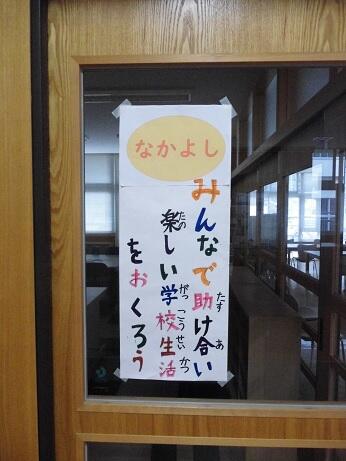 なかよし
みんなで助け合い
楽しい学校生活
をおくろう